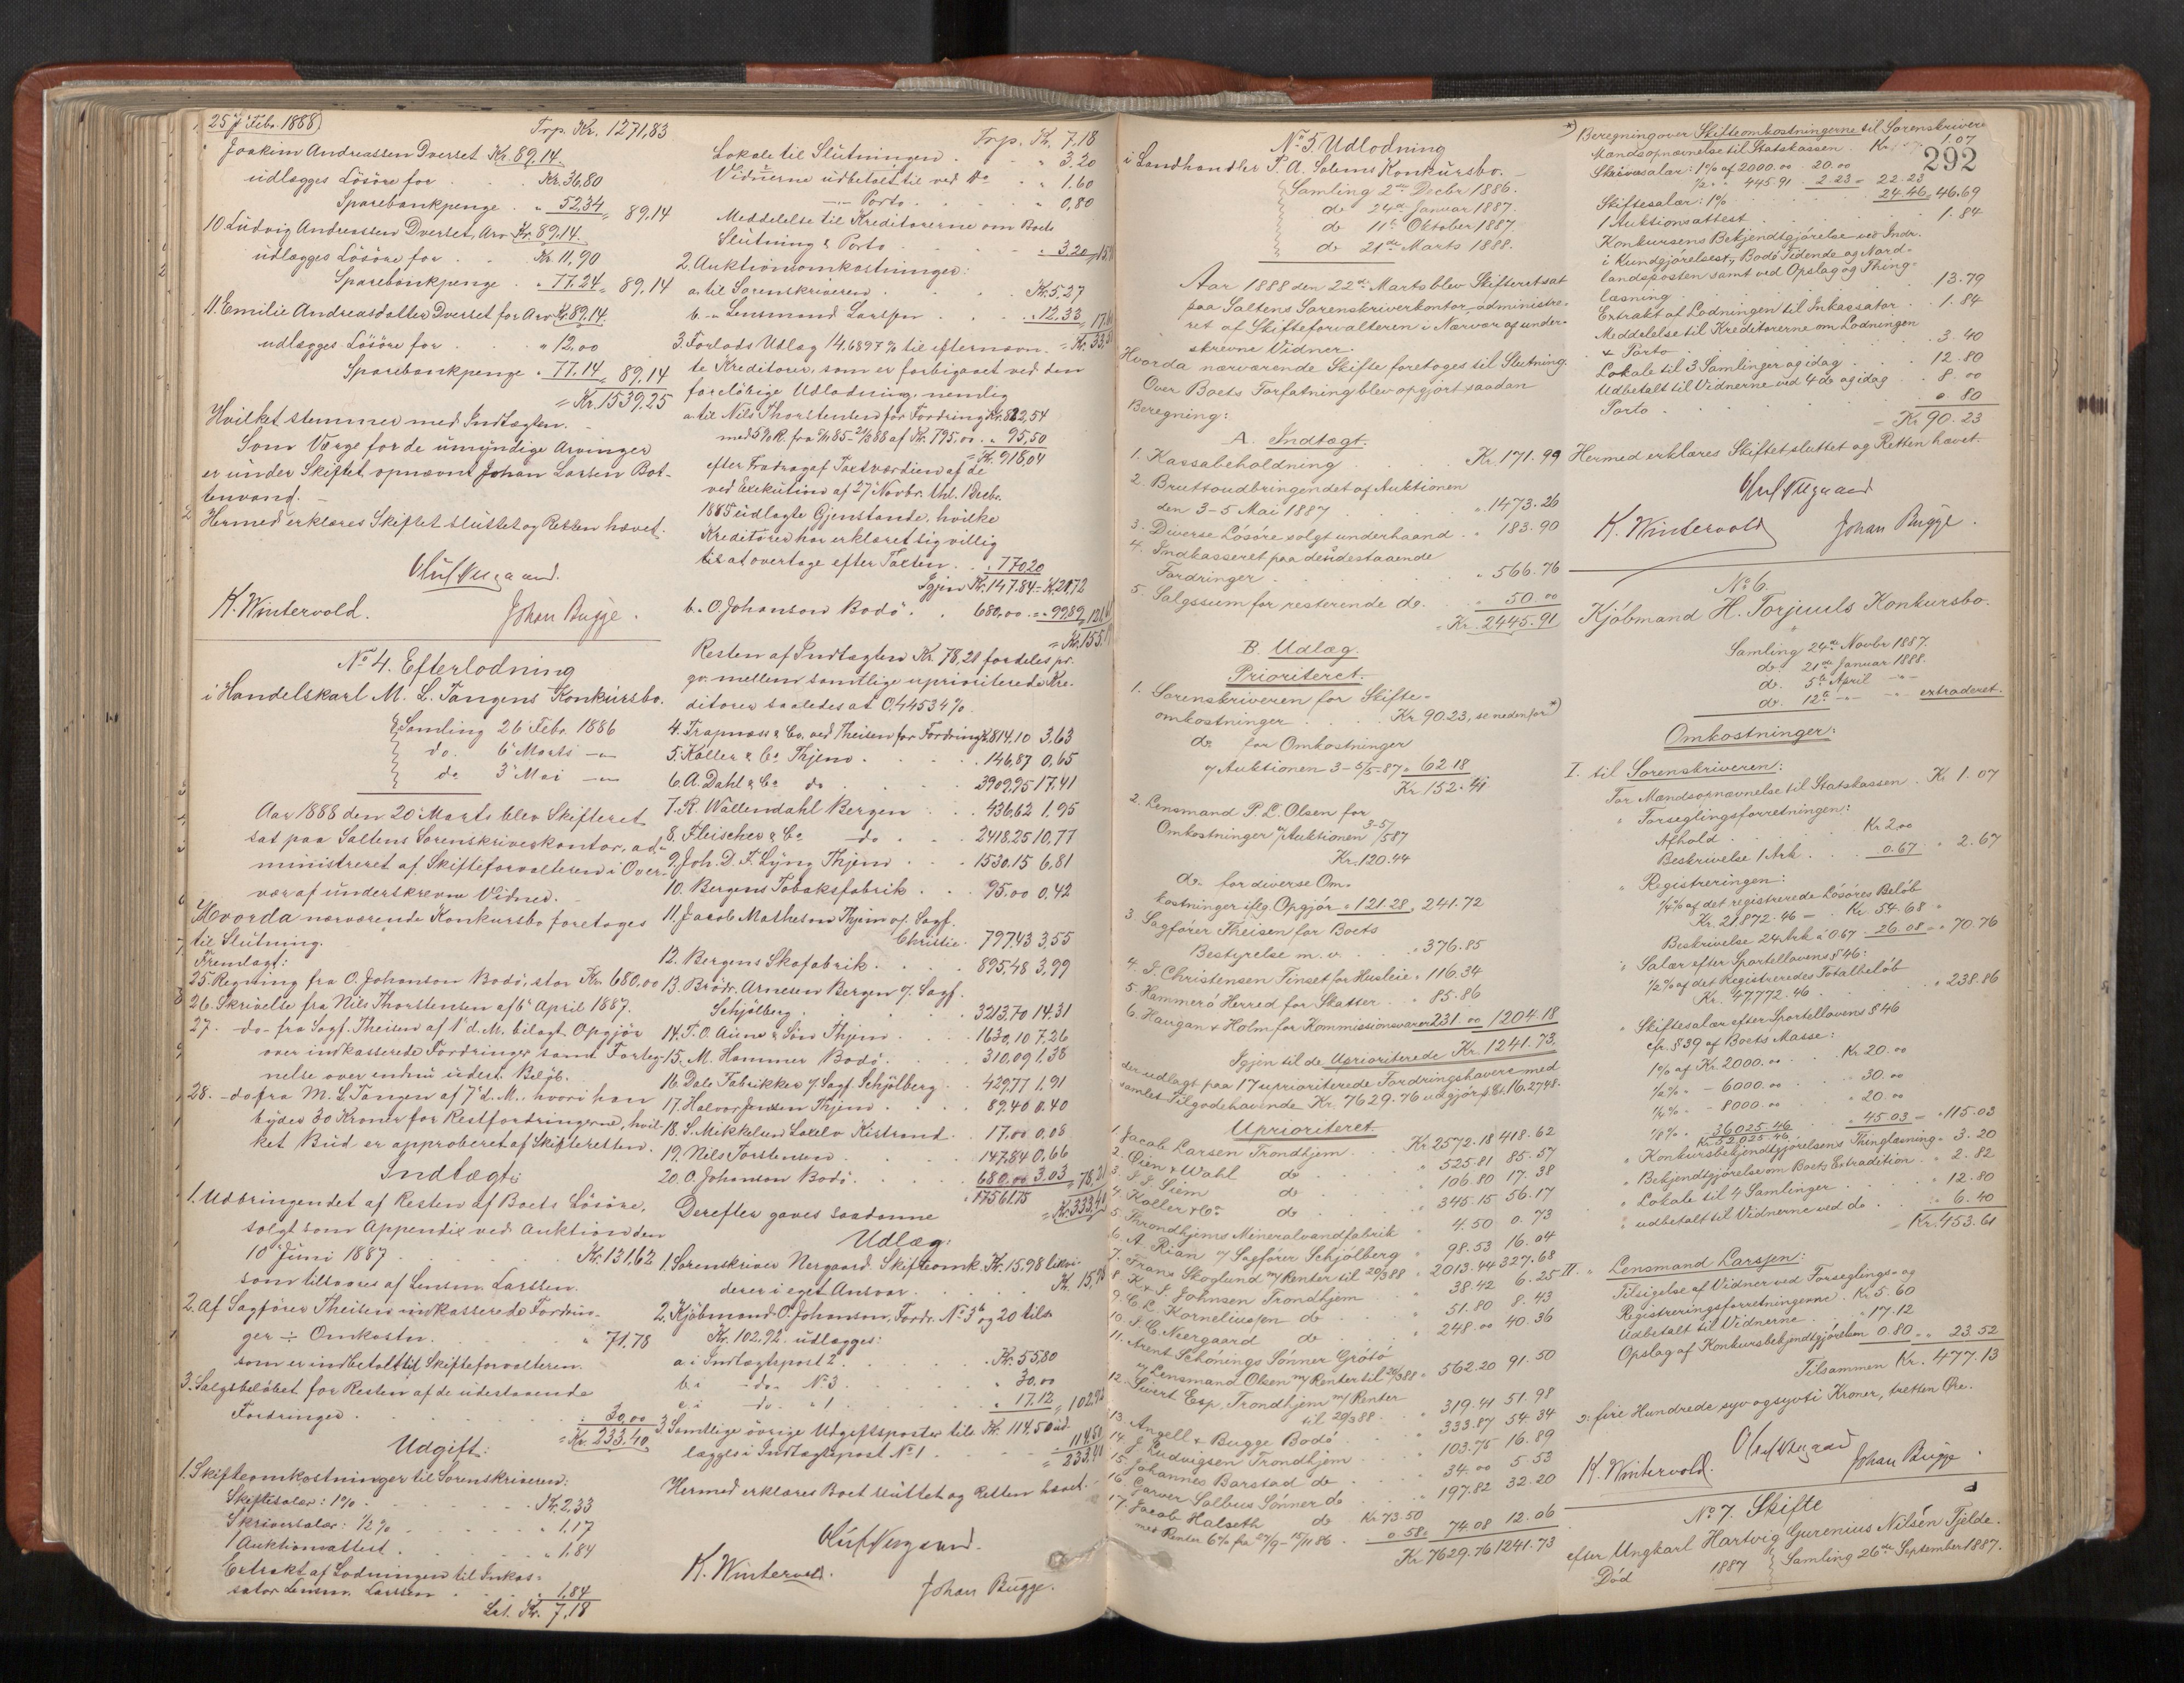 25de Febr. 1888)
Trp. Kr. 1271,83
Joakim Andreassen Dverset Kr. 89,14.
udlægges Løsøre for . . . Kr. 36,80
Sparebankpenge . " 52,34 = 89,14
10. Ludvig Andreassen Dverset, Arv Kr. 89,14.
udlægges Løsøre for . . Kr. 11,90
Sparebankpenge . " 77,24 = 89,14
11. Emilie Andreasdatter Dverset for Arv Kr. 89,14.
udlægges Løsøre for . . " 12,00
Sparebankpenge . " 77,14 = 89,14
= Kr. 1539,25
Hvilket stemmer med Indtægten.
Som Værge for de umyndige Arvinger
er under Skiftet opnævnt Johan Larsen Bot-
tenvand. -
Hermed erklæres Skiftet sluttet og Retten hævet.
Oluf Nergaard.
K. Wintervold. Johan Bugge.
No 4. Efterlodning
i Handelskarl M. L. Tangens Konkursbo.
Samling 26 Febr. 1886
do. 6 Marts -"-
do 3 Mai -"-
Aar 1888 den 20 Marts blev Skifteret
sat paa Saltens Sorenskriverkontor, ad-
ministreret af Skifteforvalteren i Over-
vær af underskrevne Vidner.
Hvorda nærværende Konkursbo foretoges
til Slutning.
Fremlagt:
25. Regning fra O. Johanson Bodø, stor Kr. 680,00
26. Skrivelse fra Nils Thorstensen af 6 April 1887.
27. - do - fra Sagf. Theisen af 1 d. M. bilagt Opgjør
over indkasserede Fordringer samt Forteg-
nelse over endnu udest. Beløb.
28. - do fra M. L. Tangen af 7 d. M., hvori han
byder 30 Kroner for Restfordringerne, hvil-
ket Bud er approberet af Skifteretten.
Indtægt:
1. Udbringendet af Resten af Boets Løsøre,
solgt som Appendix ved Auktion den
10 Juni 1887 . . . Kr. 131,62
som tilsvares af Lensm. Larssen.
2. Af Sagfører Theisen indkasserede Fordrin-
ger ÷ Omkostn. . . . " 71,78
som er indbetalt til Skifteforvalteren.
3. Salgsbeløbet for Resten af de udestaaende
Fordringer . . . " 30,00
= Kr. 233,40
Udgift:
1. Skifteomkostninger til Sorenskriveren:
Skiftesalær: 1% . . . Kr. 2,33
Skriversalær: 1/2% . . . " 1,17
1 Auktionsattest . . . " 1,84
Extrakt af Lodningen til Inkas-
sator Lensm. Larssen . . " 1,84
Lat. Kr. 7,18
Trp. Kr. 7,18
Lokale til Slutningen . . " 3,20
Vidnerne udbetalt til ved do . " 1,60
- " - Porto . . . " 0,80
Meddelelse til Kreditorerne om Boets
Slutning & Porto . . . " 3,20
2. Auktionsomkostninger:
a. til Sorenskriveren . . Kr. 5,27
b. " Lensmand Larssen . . " 12,33
3. Forlods Udlæg 14,6897% til efternævn-
te Kreditorer, som er forbigaaet ved den
foreløbige Udlodning, nemlig
a. til Nils Thorstensen for Fordring Kr. 822,54
" 95,50
= Kr. 918,04
efter Fradrag af Taxtværdien af de
ved Exekution af 27 Novbr. Uhl. 1 Decbr.
1885 udlagte Gjenstande, hvilke
Kreditoren har erklæret sig villig
til at overtage efter Taxten . . " 770,20
Igjen Kr. 147,84 = Kr. 21,72
b. " O. Johanson Bodø . . 680,00 = " 99,89
Resten af Indtægten Kr. 78,21 fordeles pr.
qv. mellem samtlige uprioriterede Kre-
ditorer saaledes at 0,44534%.
4. Trapness & Co. ved Theisen for Fordring Kr. 814,10 3,63
5. Køller & Co Thjem . . 146,87 0,65
6. A. Dahl & Co do . . 3909,95 17,41
7. R. Wallendahl Bergen . . 436,62 1,95
8. Fleischer & Co do . . 2418,25 10,77
9. Joh. D. F. Lyng Thjem . . 1530,15 6,81
10. Bergens Tobaksfabrik . . 95,00 0,42
11. Jacob Matheson Thjem v/ Sagf.
Christie . 797,43 3,55
12. Bergens Skofabrik . . 895,48 3,99
13. Brødr. Arnesen Bergen v/ Sagf.
Schjølberg . . 3213,70 14,31
14. T. O. Aune & Søn Thjem . . 1630,10 7,26
15. M. Hammer Bodø . . 310,09 1,38
16. Dale Fabrikker v/ Sagf. Schjølberg . . 429,77 1,91
17. Halvor Jensen Thjem . . 89,40 0,40
18. S. Mikkelsen Laxelv Kistrand . 17,00 0,08
19. Nils Torstensen . . 147,84 0,66
20. O. Johanson Bodø . . 680,00 3,03 = 78,21
" 17561,75
Derefter gaves saadanne
Udlæg:
1. Sorenskriver Nergaard, Skifteomk. Kr. 15,98 likvi-
derer i eget Ansvar . . .
2. Kjøbmand O. Johanson, Fordr. No 3b og 20 tils.
Kr. 102,92 udlægges:
a. i Indtægtspost 2 . . Kr. 55,80
b. i - do - No 3 . . " 30,00
c. i - do - " 1 . . " 17,12 = 102,92
3. Samtlige øvrige Udgiftsposter tils. Kr. 114,50 ud-
lægges i Indtægtspost No 1 . . 114,50
= 233,40
Hermed erklæres Boet sluttet og Retten hævet.
Oluf Nergaard.
K. Wintervold.
Johan Bugge.
No 5. Udlodning
i Landhandler P. A. Solems Konkursbo. -
Samling 2den Decbr 1886.
do 24de Januar 1887.
do 11te Oktober 1887.
do 21de Marts 1888.
Aar 1888 den 22de Marts blev Skifteret sat
paa Saltens Sorenskriverkontor, administre-
ret af Skifteforvalteren i Nærvær af under-
skrevne Vidner.
Hvorda nærværende Skifte foretoges til Slutning.
Over Boets Forfatning blev opgjort saadan
Beregning:
A. Indtægt.
1. Kassabeholdning . . . Kr. 171.99
2. Bruttoudbringendet af Auktionen
den 3-5 Mai 1887 . . . " 1473.26
3. Diverse Løsøre solgt underhaand . . " 183.90
4. Indkasseret paa de udestaaende
Fordringer . . . " 566.76
5. Salgssum for resterende do. . . " 50.00
= Kr. 2445.91
B. Udlæg.
Prioriteret.
1. Sorenskriveren for Skifte-
omkostninger . . . Kr. 90.23, se nedenfor *)
do. for Omkostninger
v/ Auktionen 3-5/5-87 " 62.18
Kr. 152.41
2. Lensmand P. L. Olsen for
Omkostninger v/ Auktionen 3-5/587
Kr. 120.44
do. for diverse Om-
kostninger iflg. Opgjør " 121.28 " 241.72
3. Sagfører Theisen for Boets
Bestyrelse m. v. . . " 376.85
4. J. Christensen Finset for Husleie " 116.34
5. Hammerø Herred for Skatter . " 85.86
6. Haugan & Holm for Kommissionsvarer " 231.00 1204.18
Igjen til de Uprioriterede Kr. 1241.73,
der udlagt paa 17 uprioriterede Fordringshavere med
samlet Tilgodehavende Kr. 7629.76 udgjør p. Ct. 16.2748.
Uprioriteret
1. Jacob Larsen Trondhjem . . Kr. 2572.18 418.62
2. Øien & Wahl do . " 525.81 85.57
3. J. J. Siem do . " 106.80 17.38
4. Køller & Co do . " 345.15 56.17
5. Throndhjems Mineralvandfabrik " 4.50 0.73
6. A. Rian v/ Sagfører Schjølberg " 98.53 16.04
7. Frans Skoglund m/ Renter til 20/388 " 2013.44 327.68
8. K. & J. Johnsen Trondhjem . " 38.42 6.25
9. C. L. Korneliussen do . . " 51.80 8.43
10. J. C. Neergaard do . . " 248.00 40.36
11. Arent Schønings Sønner Grøtø
v/ Lensmand Olsen m/ Renter til 20/388 " 562.20 91.50
12. Sivert Esp, Trondhjem m/ Renter
til 20/388 . . " 319.41 51.98
13. Angell & Bugge Bodø . . " 333.87 54.34
14. J. Ludvigsen Trondhjem . . " 103.75 16.89
15. Johannes Barstad do . . " 34.00 5.53
16. Garver Salbus Sønner do . . " 197.82 32.20
17. Jacob Halseth do Kr. 73.50
med Renter 6% fra 27/9 - 15/11 86 . " 0.58 = 74.08 12.06
Kr. 7629.76 1241.73
*) Beregning over Skifteomkostningerne til Sorenskriveren
Mandsopnævnelse til Statskassen . Kr. 1.07
292
Skriversalær: 1% af 2000.00 = 20.00
1/2% " 445.91 . 2.23 = 22.23
Skiftesalær: 1% . . . 24.46 = 46.69
1 Auktionsattest . . . 1.84
Konkursens Bekjendtgjørelse ved Indr.
i Kundgjørelsest., Bodø Tidende og Nord-
landsposten samt ved Opslag og Thing-
læsning . . . 13.79
Extrakt af Lodningen til Inkassator . 1.84
Meddelelse til Kreditorerne om Lodningen
& Porto . . . 3.40
Lokale til 3 Samlinger og idag . . 12.80
Udbetalt til Vidnerne ved 4 do og idag . 8.00
Porto . . . 0.80
= Kr. 90.23
Hermed erklæres Skiftet sluttet og Retten hævet.
Oluf Nergaard
K. Wintervold Johan Bugge.
No 6.
Kjøbmand H. Torjuuls Konkursbo.
Samling 24de Novbr 1887.
do 21de Januar 1888.
do. 5te April -"-
do. 12te -"- -"- extraderet.
Omkostninger:
I. til Sorenskriveren:
For Mandsopnævnelse til Statskassen . Kr. 1.07
" Forseglingsforretningen:
Afhold . . Kr. 2.00
Beskrivelse 1 Ark . . 0.67 " 2.67
" Registreringen:
1/4% af det registrerede Løsøres Beløb
Kr. 21,872.46 - . Kr. 54.68
Beskrivelse 24 Ark à 0.67 . 26.08 = " 70.76
" Salær efter Sportellovens § 46:
1/2% af det Registreredes Totalbeløb
Kr. 47,772.46 . . . " 238.86
" Skiftesalær efter Sportellovens § 46
cfr. § 39 af Boets Masse:
1% af Kr. 2000.00 . . Kr. 20.00
1/2% " - 6000.00 . . " 30.00
1/4% " - 8000.00 . . " 20.00
1/8% " - 36025.46 . . " 45.03 = " 115.03
Kr. 52,025.46
" Konkursbekjendtgjørelsens Thinglæsning " 3.20
" Bekjendtgjørelse om Boets Extradition . " 2.82
" Lokale til 4 Samlinger . . . " 12.80
" udbetalt til Vidnerne ved do . . " 6.40
= Kr. 453.61
II. " Lensmand Larssen:
Tilsigelse af Vidner ved Forseglings- og
Registreringsforretningerne . Kr. 5.60
Udbetalt til Vidnerne . . " 17.12
Opslag af Konkursbekjendtgjørelsen 0.80 = " 23.52
Tilsammen Kr. 477.13
ɔ: fire Hundrede syv og syvti Kroner, tretten Øre.
Oluf Nergaard
K. Wintervold. Johan Bugge
No 7. Skifte
efter Ungkarl Hartvig Gurenius Nilsen Fjelde.
Død 1887 Samling 26de September 1887.